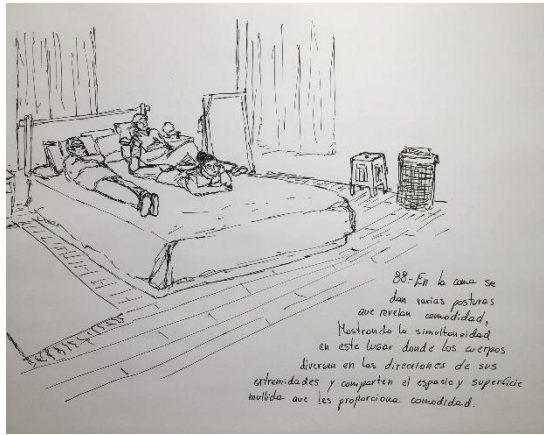 88.- En la cama se
dan varias posturas
que revelan comodidad,
Mostrando la simultaneidad
en este lugar donde los cuerpos
diversan en las direcciones de sus
extremidades y comparten el espacio y superficie
mullida que les proporciona comodidad.